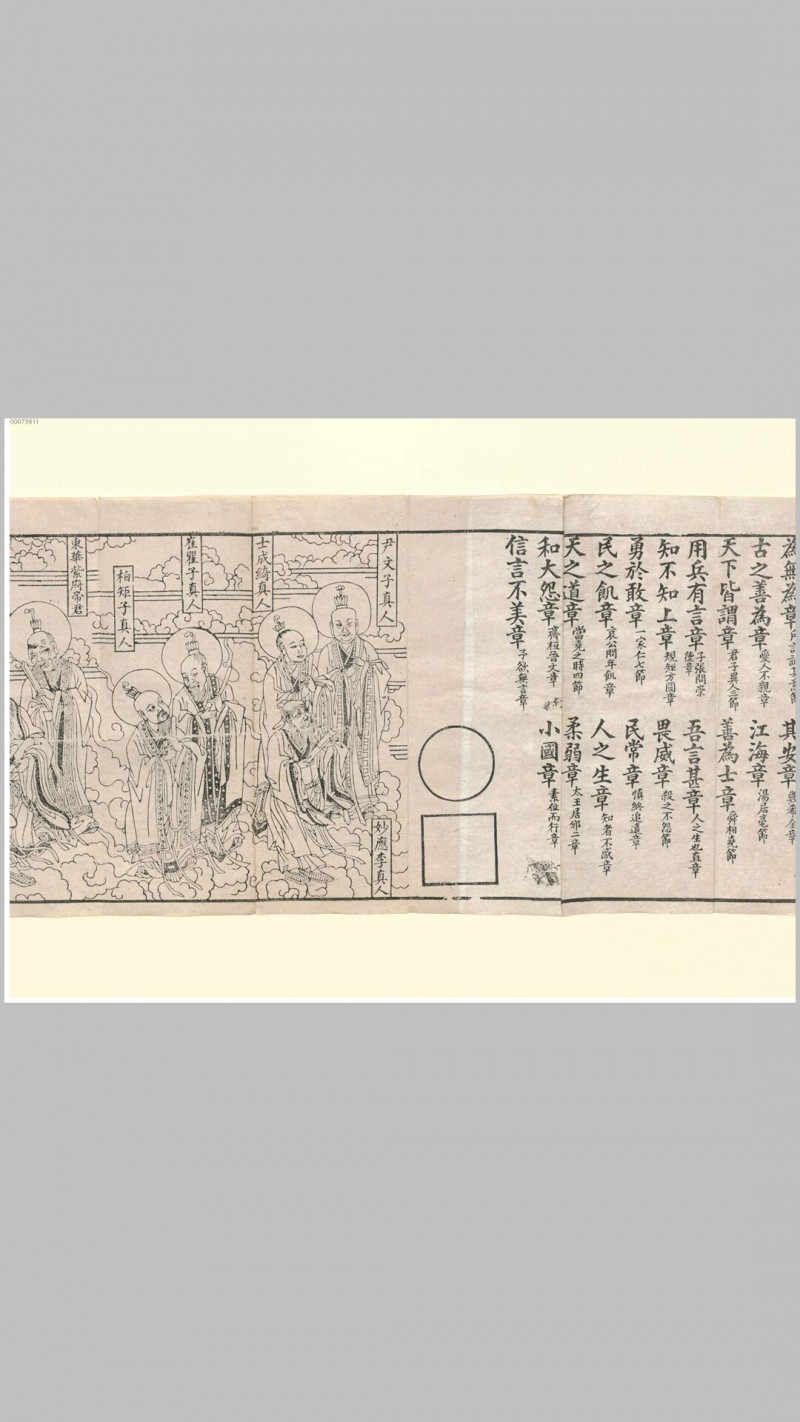 00073611
為無為章
古之善為章 愛人不親章
天下皆謂章 君子異人二節
用兵有言章 子張問崇德章
知不知上章 規矩方圓章
勇於敢章 一家仁七節
民之飢章 哀公問年飢章
天之道章 當堯之時四節
和大怨章 齊桓晉文章
信言不美章 予欲無言章
其安章
江海章 湯居亳節
善為士章 舜相堯節
吾言甚章 人之生也直章
畏威章 殺之不怨節
民常章 慎終追遠章
人之生章 知者不惑章
柔弱章 太王居邠二章
小國章 素位而行章
尹文子真人
妙應李真人
士成綺真人
崔瞿子真人
柏矩子真人
東華紫府帝君